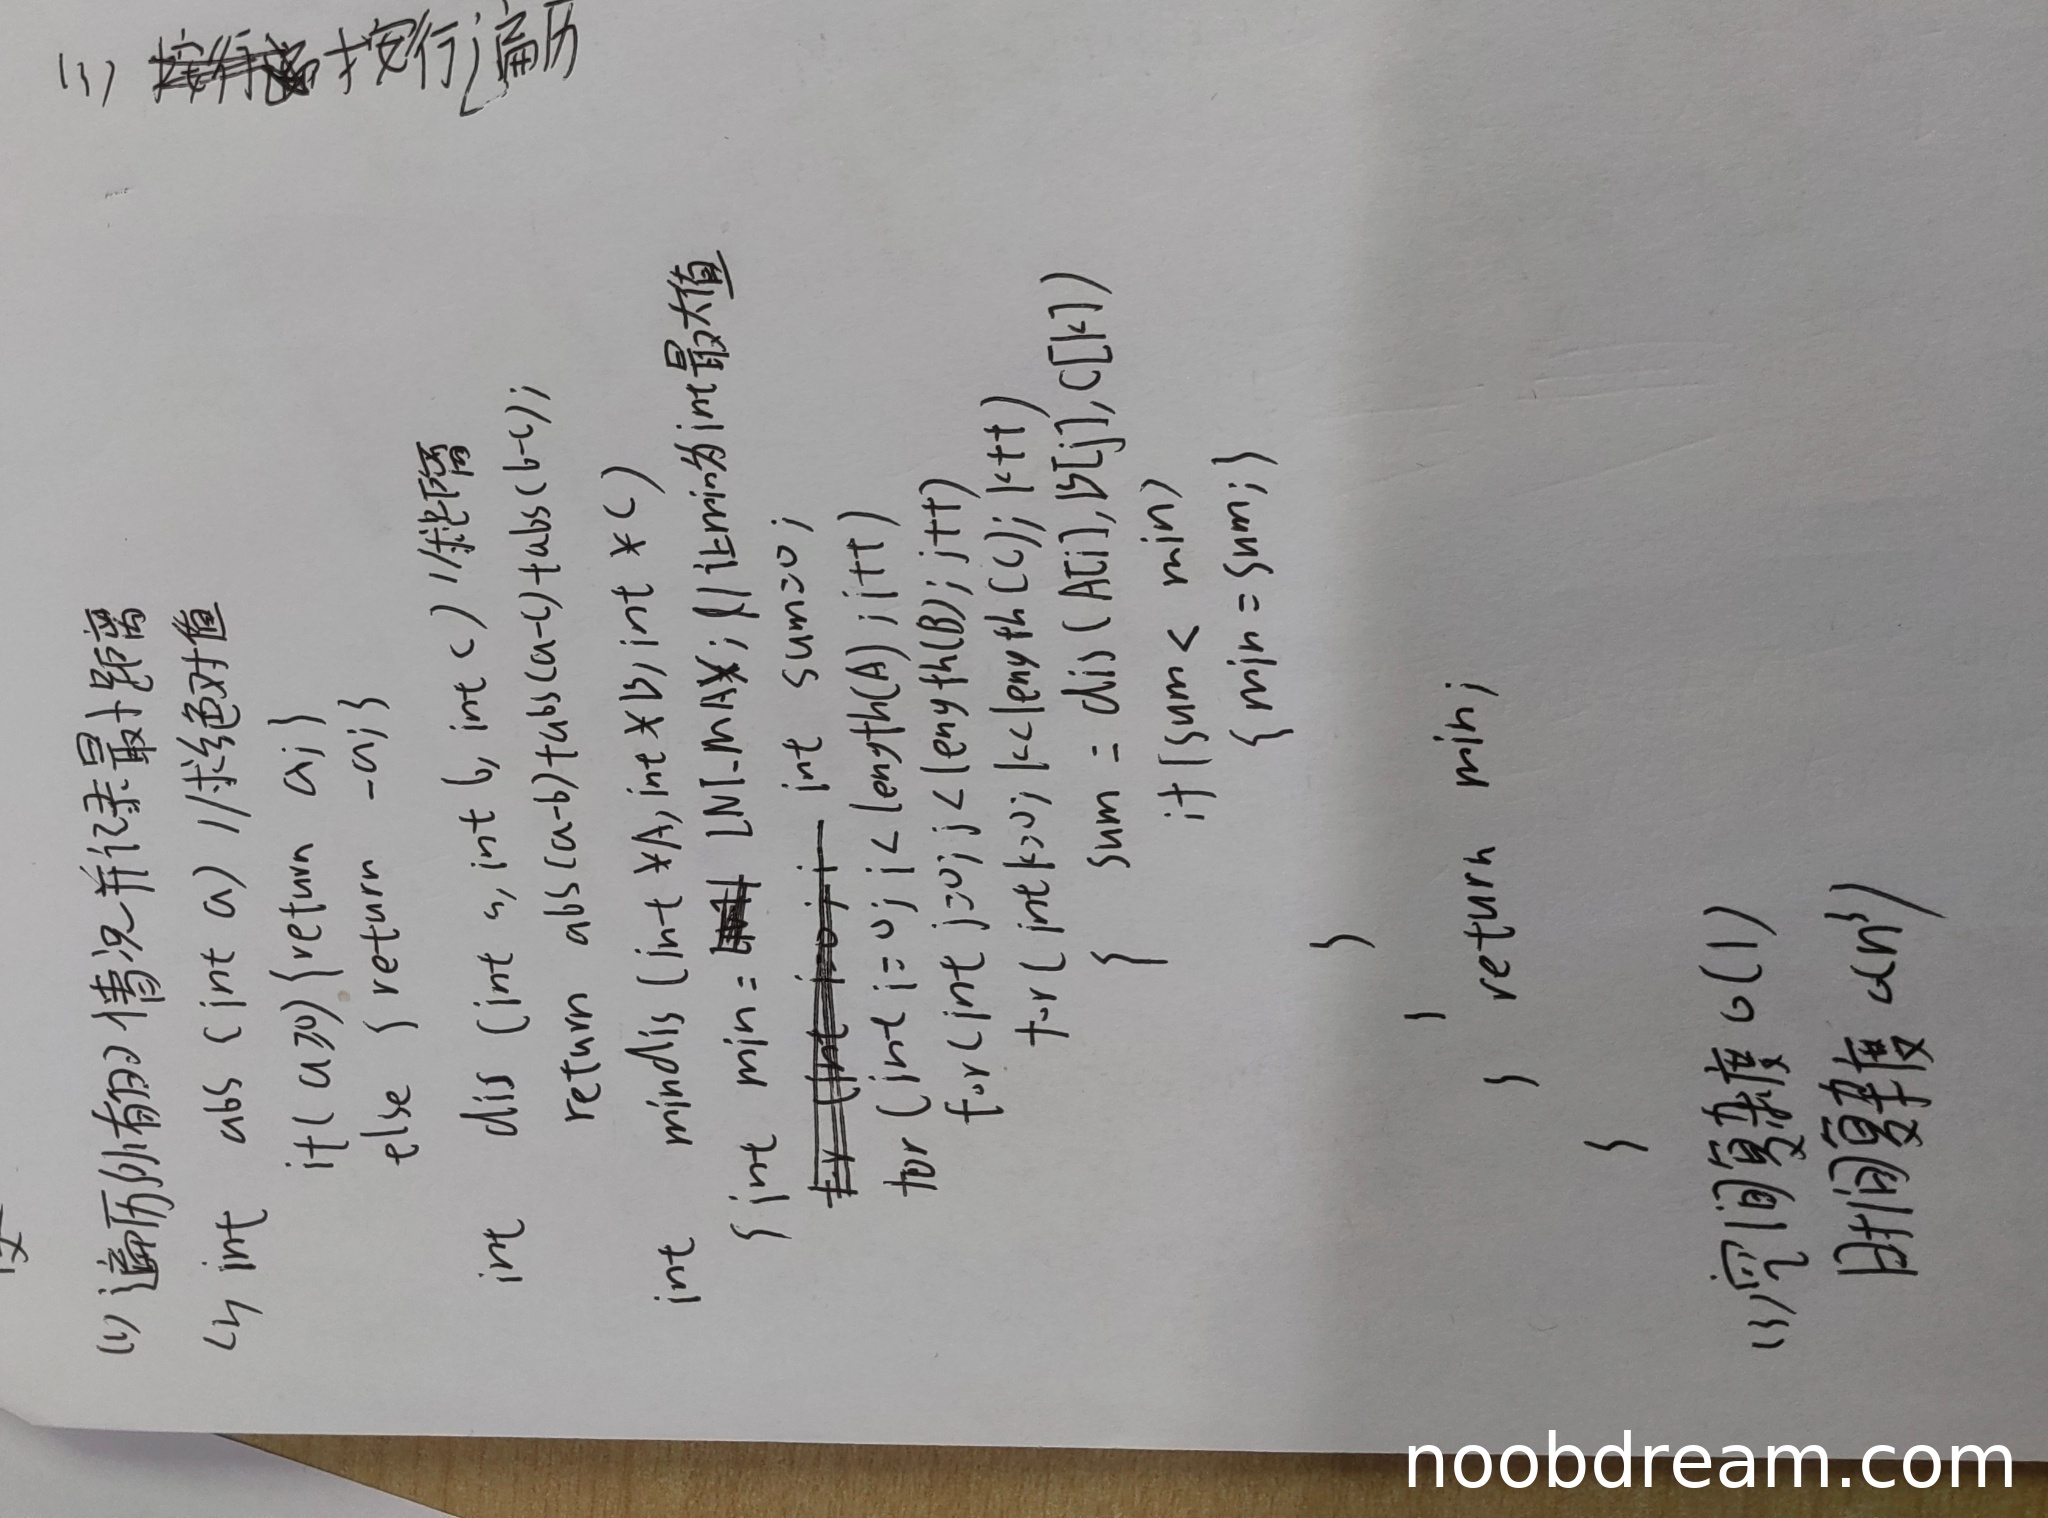 (1) 遍历所有的情况并记录最小距离
(2) int abs (int a) //求绝对值
if (a≥0) {return a;}
else { return -a;}
int dis (int a, int b, int c) //求距离
return abs(a-b)+abs(a-c)+abs(b-c);
int mindis (int *A, int *B, int *C)
{ int min = INT_MAX; // 让min为int最大值
int sum=0;
for (int i=0; i<length(A); i++)
for (int j=0; j<length(B); j++)
for (int k=0; k<length(C); k++)
{ sum = dis (A[i], B[j], C[k])
if (sum < min)
{ min = sum; }
}
}
} return min;
}
(3) 空间复杂度 O(1)
时间复杂度 O(n³)
三 按行遍历
noobdream.com